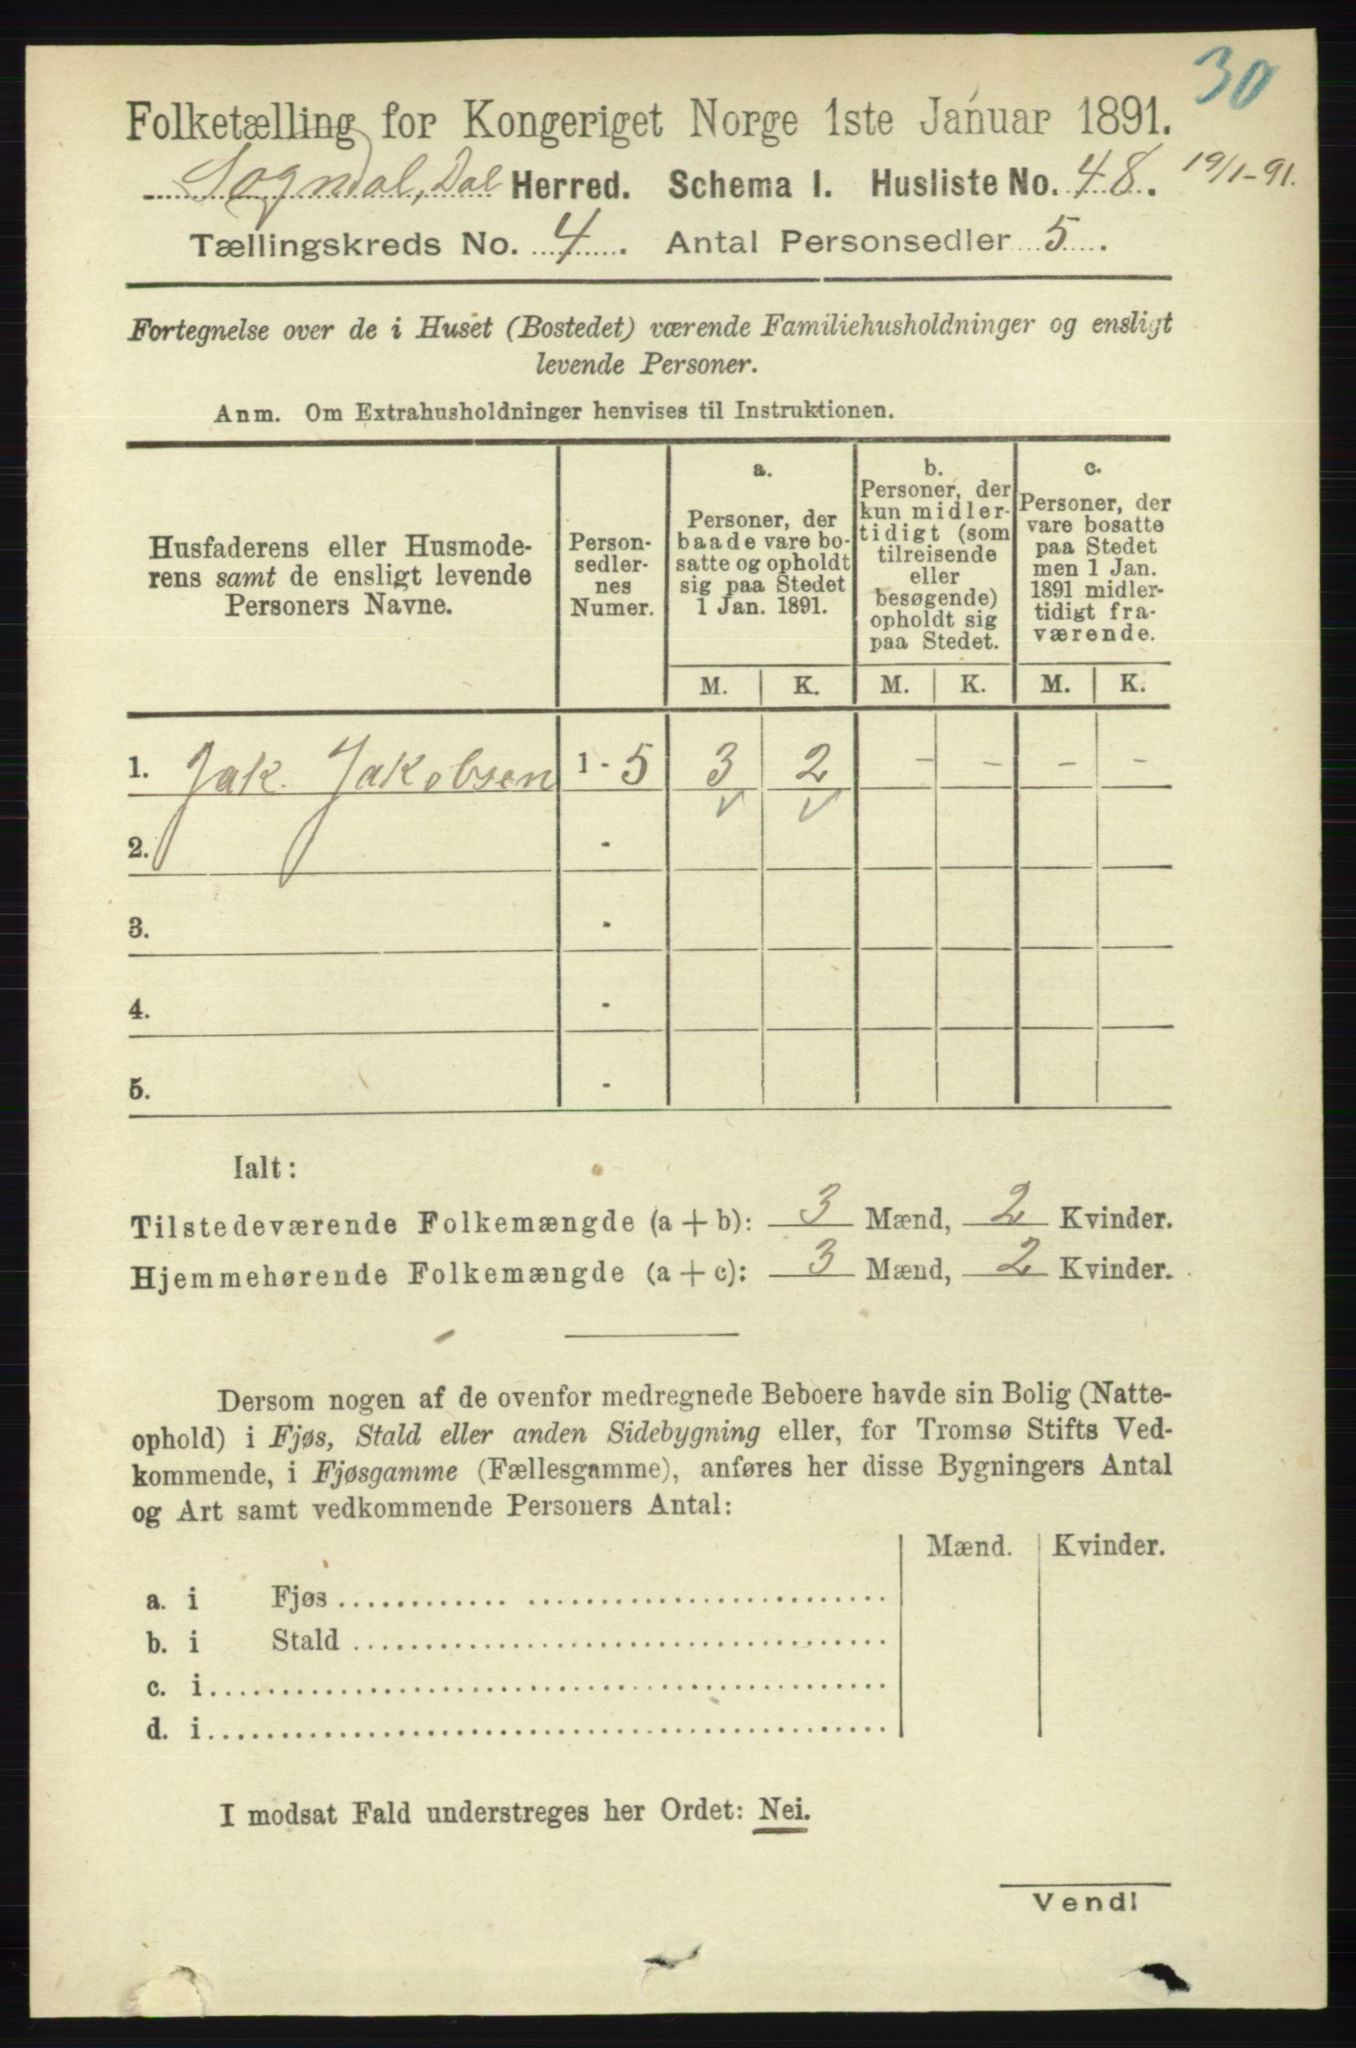 30
Folketælling for Kongeriget Norge 1ste Januar 1891.
Sogndal, Dal Herred. Schema I. Husliste No. 48. 19/1-91.
Tællingskreds No. 4. Antal Personsedler 5.
Fortegnelse over de i Huset (Bostedet) værende Familiehusholdninger og ensligt
levende Personer.
Anm. Om Extrahusholdninger henvises til Instruktionen.
Husfaderens eller Husmode-
rens samt de ensligt levende
Personers Navne.
Person-
sedler-
nes
Numer.
a.
Personer, der
baade vare bo-
satte og opholdt
sig paa Stedet
1 Jan. 1891.
b.
Personer, der
kun midler-
tidigt (som
tilreisende
eller
besøgende)
opholdt sig
paa Stedet.
c.
Personer, der
vare bosatte
paa Stedet
men 1 Jan.
1891 midler-
tidigt fra-
værende.
M. K. M. K. M. K.
1. Jak. Jakobsen 1 - 5 3 2 - - - -
✓ ✓
2. -
3. -
4. -
5. -
Ialt:
Tilstedeværende Folkemængde (a + b): 3 Mænd, 2 Kvinder.
Hjemmehørende Folkemængde (a + c): 3 Mænd, 2 Kvinder.
Dersom nogen af de ovenfor medregnede Beboere havde sin Bolig (Natte-
ophold) i Fjøs, Stald eller anden Sidebygning eller, for Tromsø Stifts Ved-
kommende, i Fjøsgamme (Fællesgamme), anføres her disse Bygningers Antal
og Art samt vedkommende Personers Antal:
Mænd. Kvinder.
a. i Fjøs
b. i Stald
c. i
d. i
I modsat Fald understreges her Ordet: Nei.
Vend!